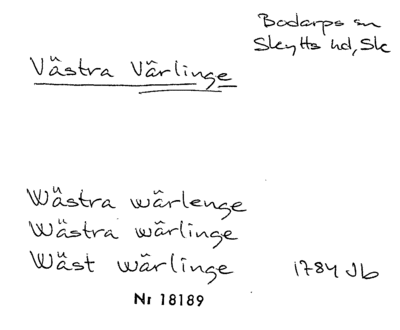 Bodarps sn
Skytts hd, Sk
Västra Värlinge
Wästra wärlenge
Wästra wärlinge
Wäst wärlinge 1784 Jb
Nr 18189